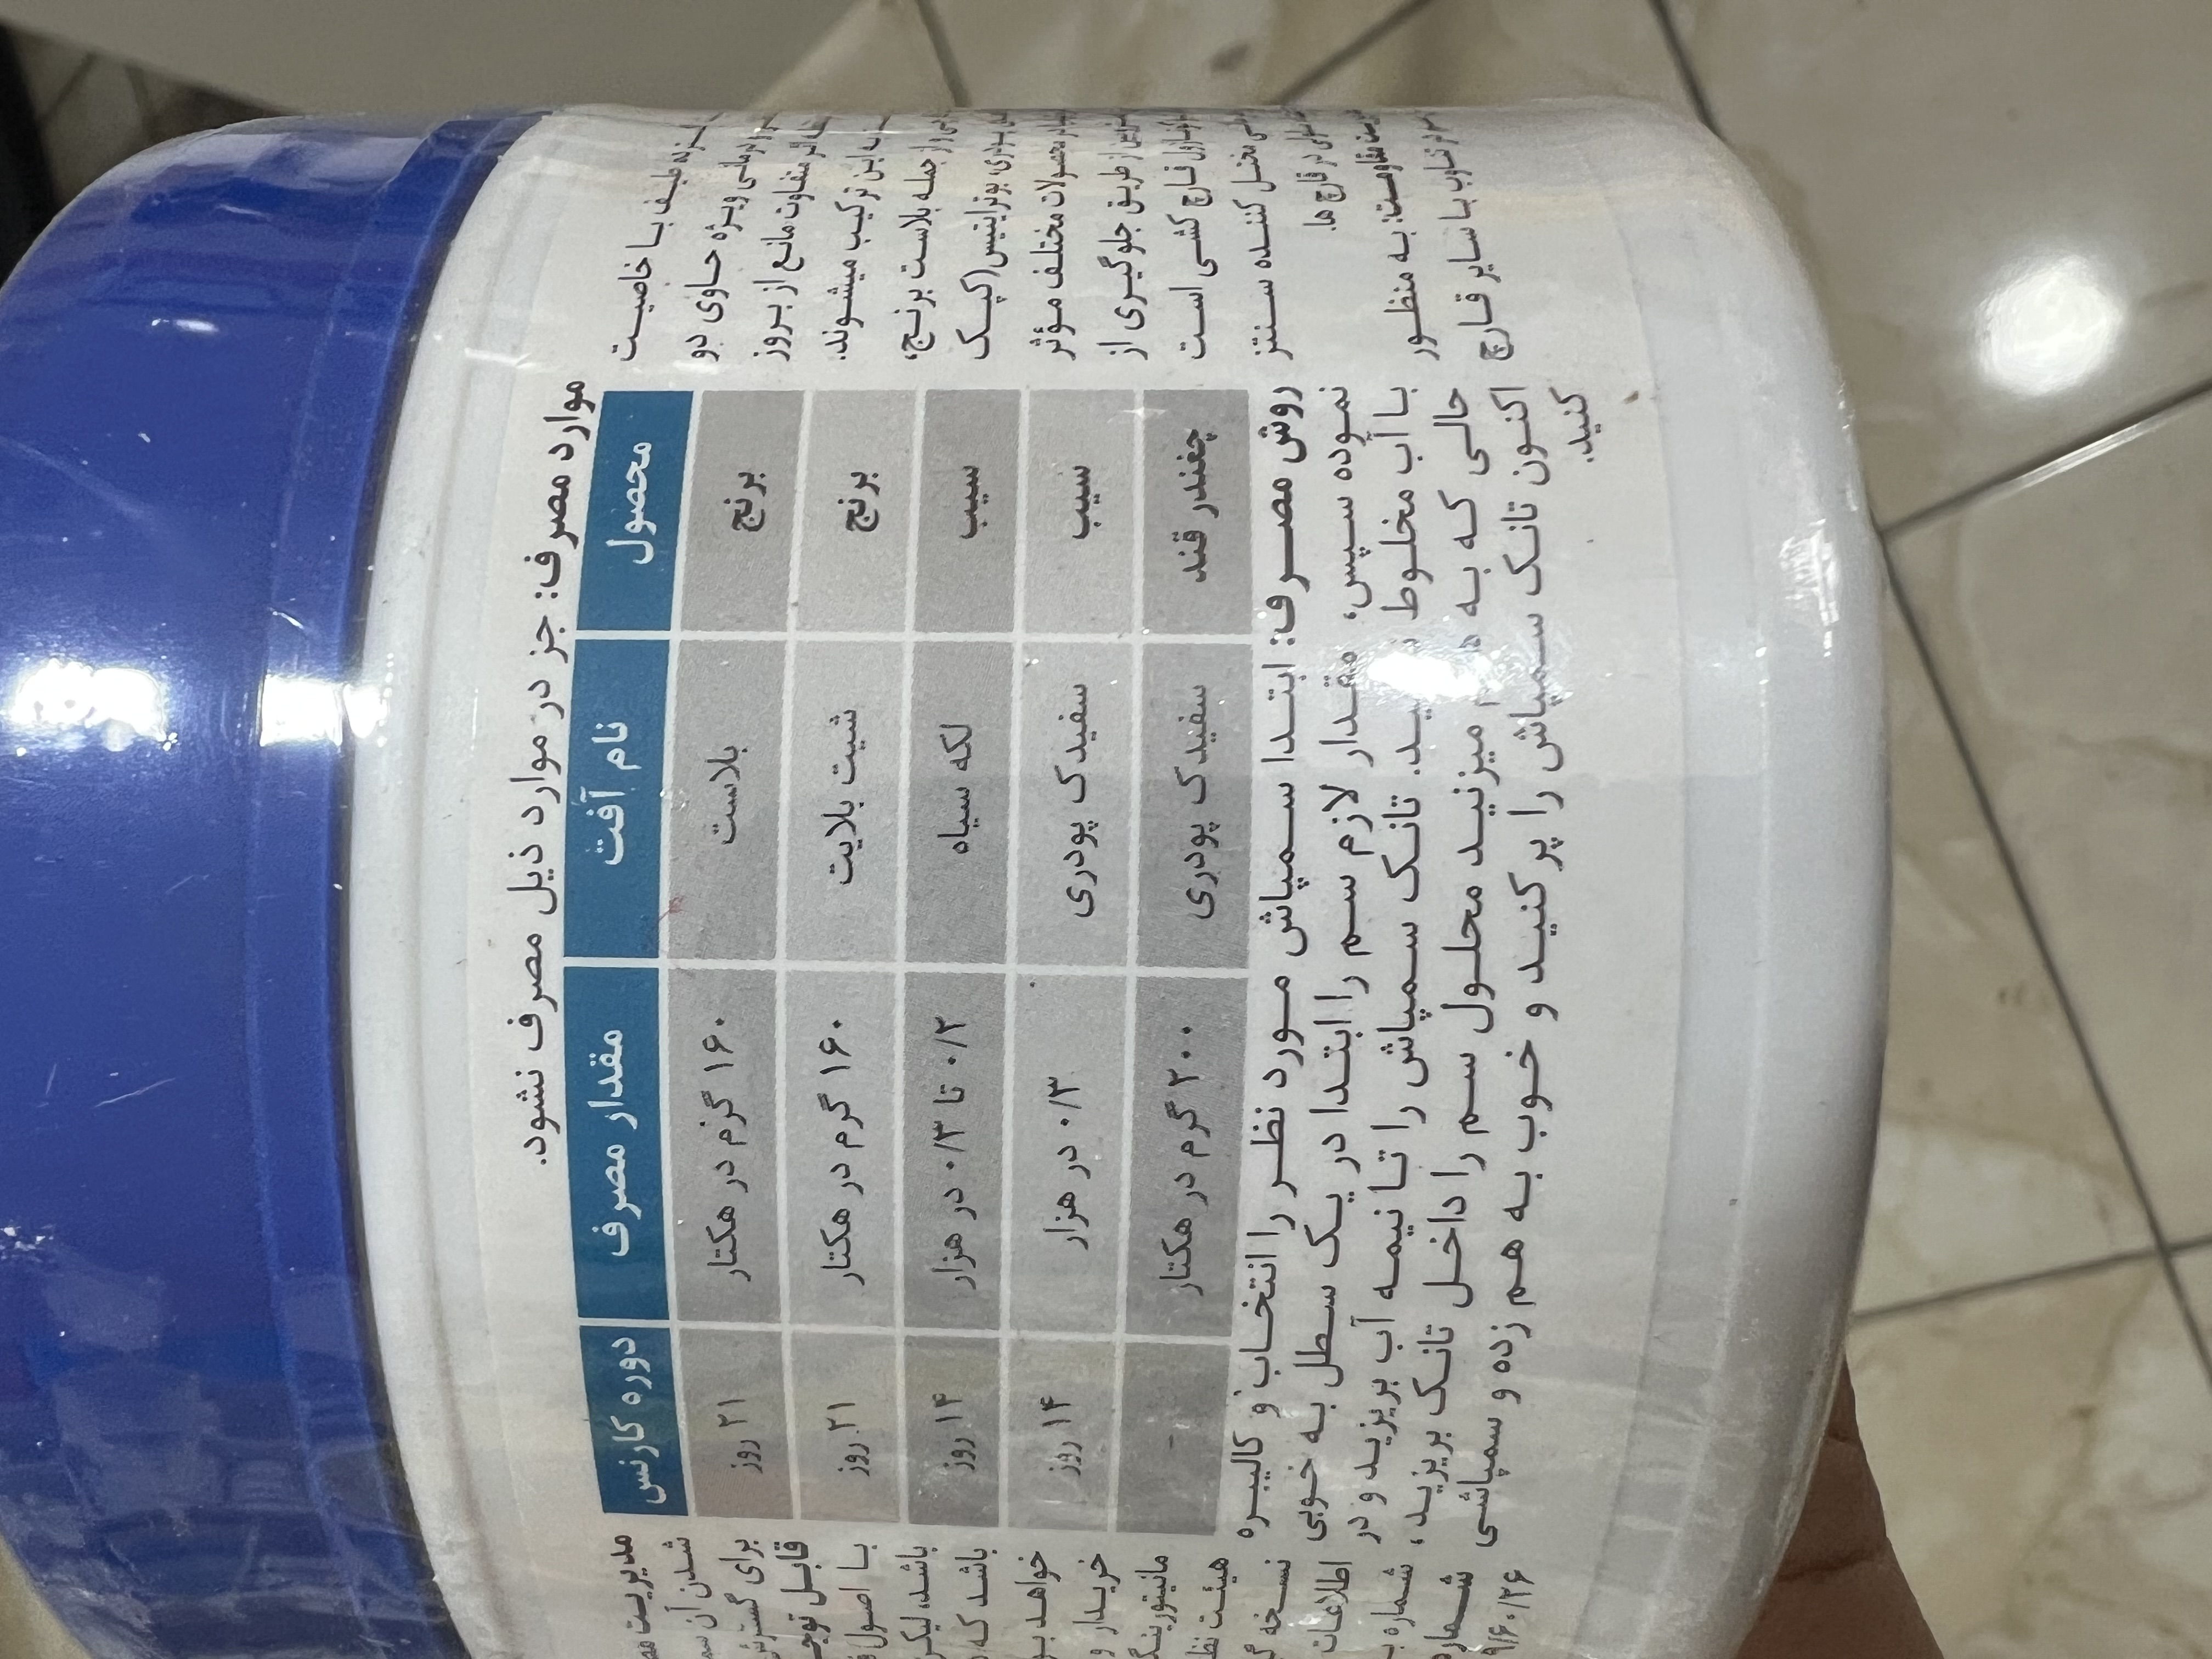 موارد مصرف: جز در موارد ذیل مصرف نشود.
محصول نام آفت مقدار مصرف دوره کارنس
برنج بلاست ۱۶۰ گرم در هکتار ۲۱ روز
برنج شیت بلایت ۱۶۰ گرم در هکتار ۲۱ روز
سیب لکه سیاه ۰/۲ تا ۰/۳ در هزار ۱۴ روز
سیب سفیدک پودری ۰/۳ در هزار ۱۴ روز
چغندر قند سفیدک پودری ۲۰۰ گرم در هکتار -
روش مصرف: ابتدا سمپاش مورد نظر را انتخاب و کالیبره
نموده سپس، مقدار لازم سم را ابتدا در یک سطل به خوبی
با آب مخلوط تانک سمپاش را تا نیمه آب بریزید و در
حالی که به میزنید محلول سم را داخل تانک بریزید،
اکنون تانک سمپاش را پر کنید و خوب به هم زده و سمپاشی
کنید.
طیف با خاصیت
ویژه حاوی دو
متفاوت مانع از بروز
این ترکیب میشوند.
از جمله بلاست برنج،
پودری، بوتریتیس (کپک
محصولات مختلف مؤثر
از طریق جلوگیری از
قارچ کشی است
مختل کننده سنتز
در قارچ ها.
مقاومت: به منظور
تناوب با سایر قارچ
مدیریت
شدن آن
برای گسترش
قابل
با اصول
باشد، لیکن
باشد که
خواهد
خریدار و
مانیتورینگ
هیئت
نسخه
اطلاعات
شماره